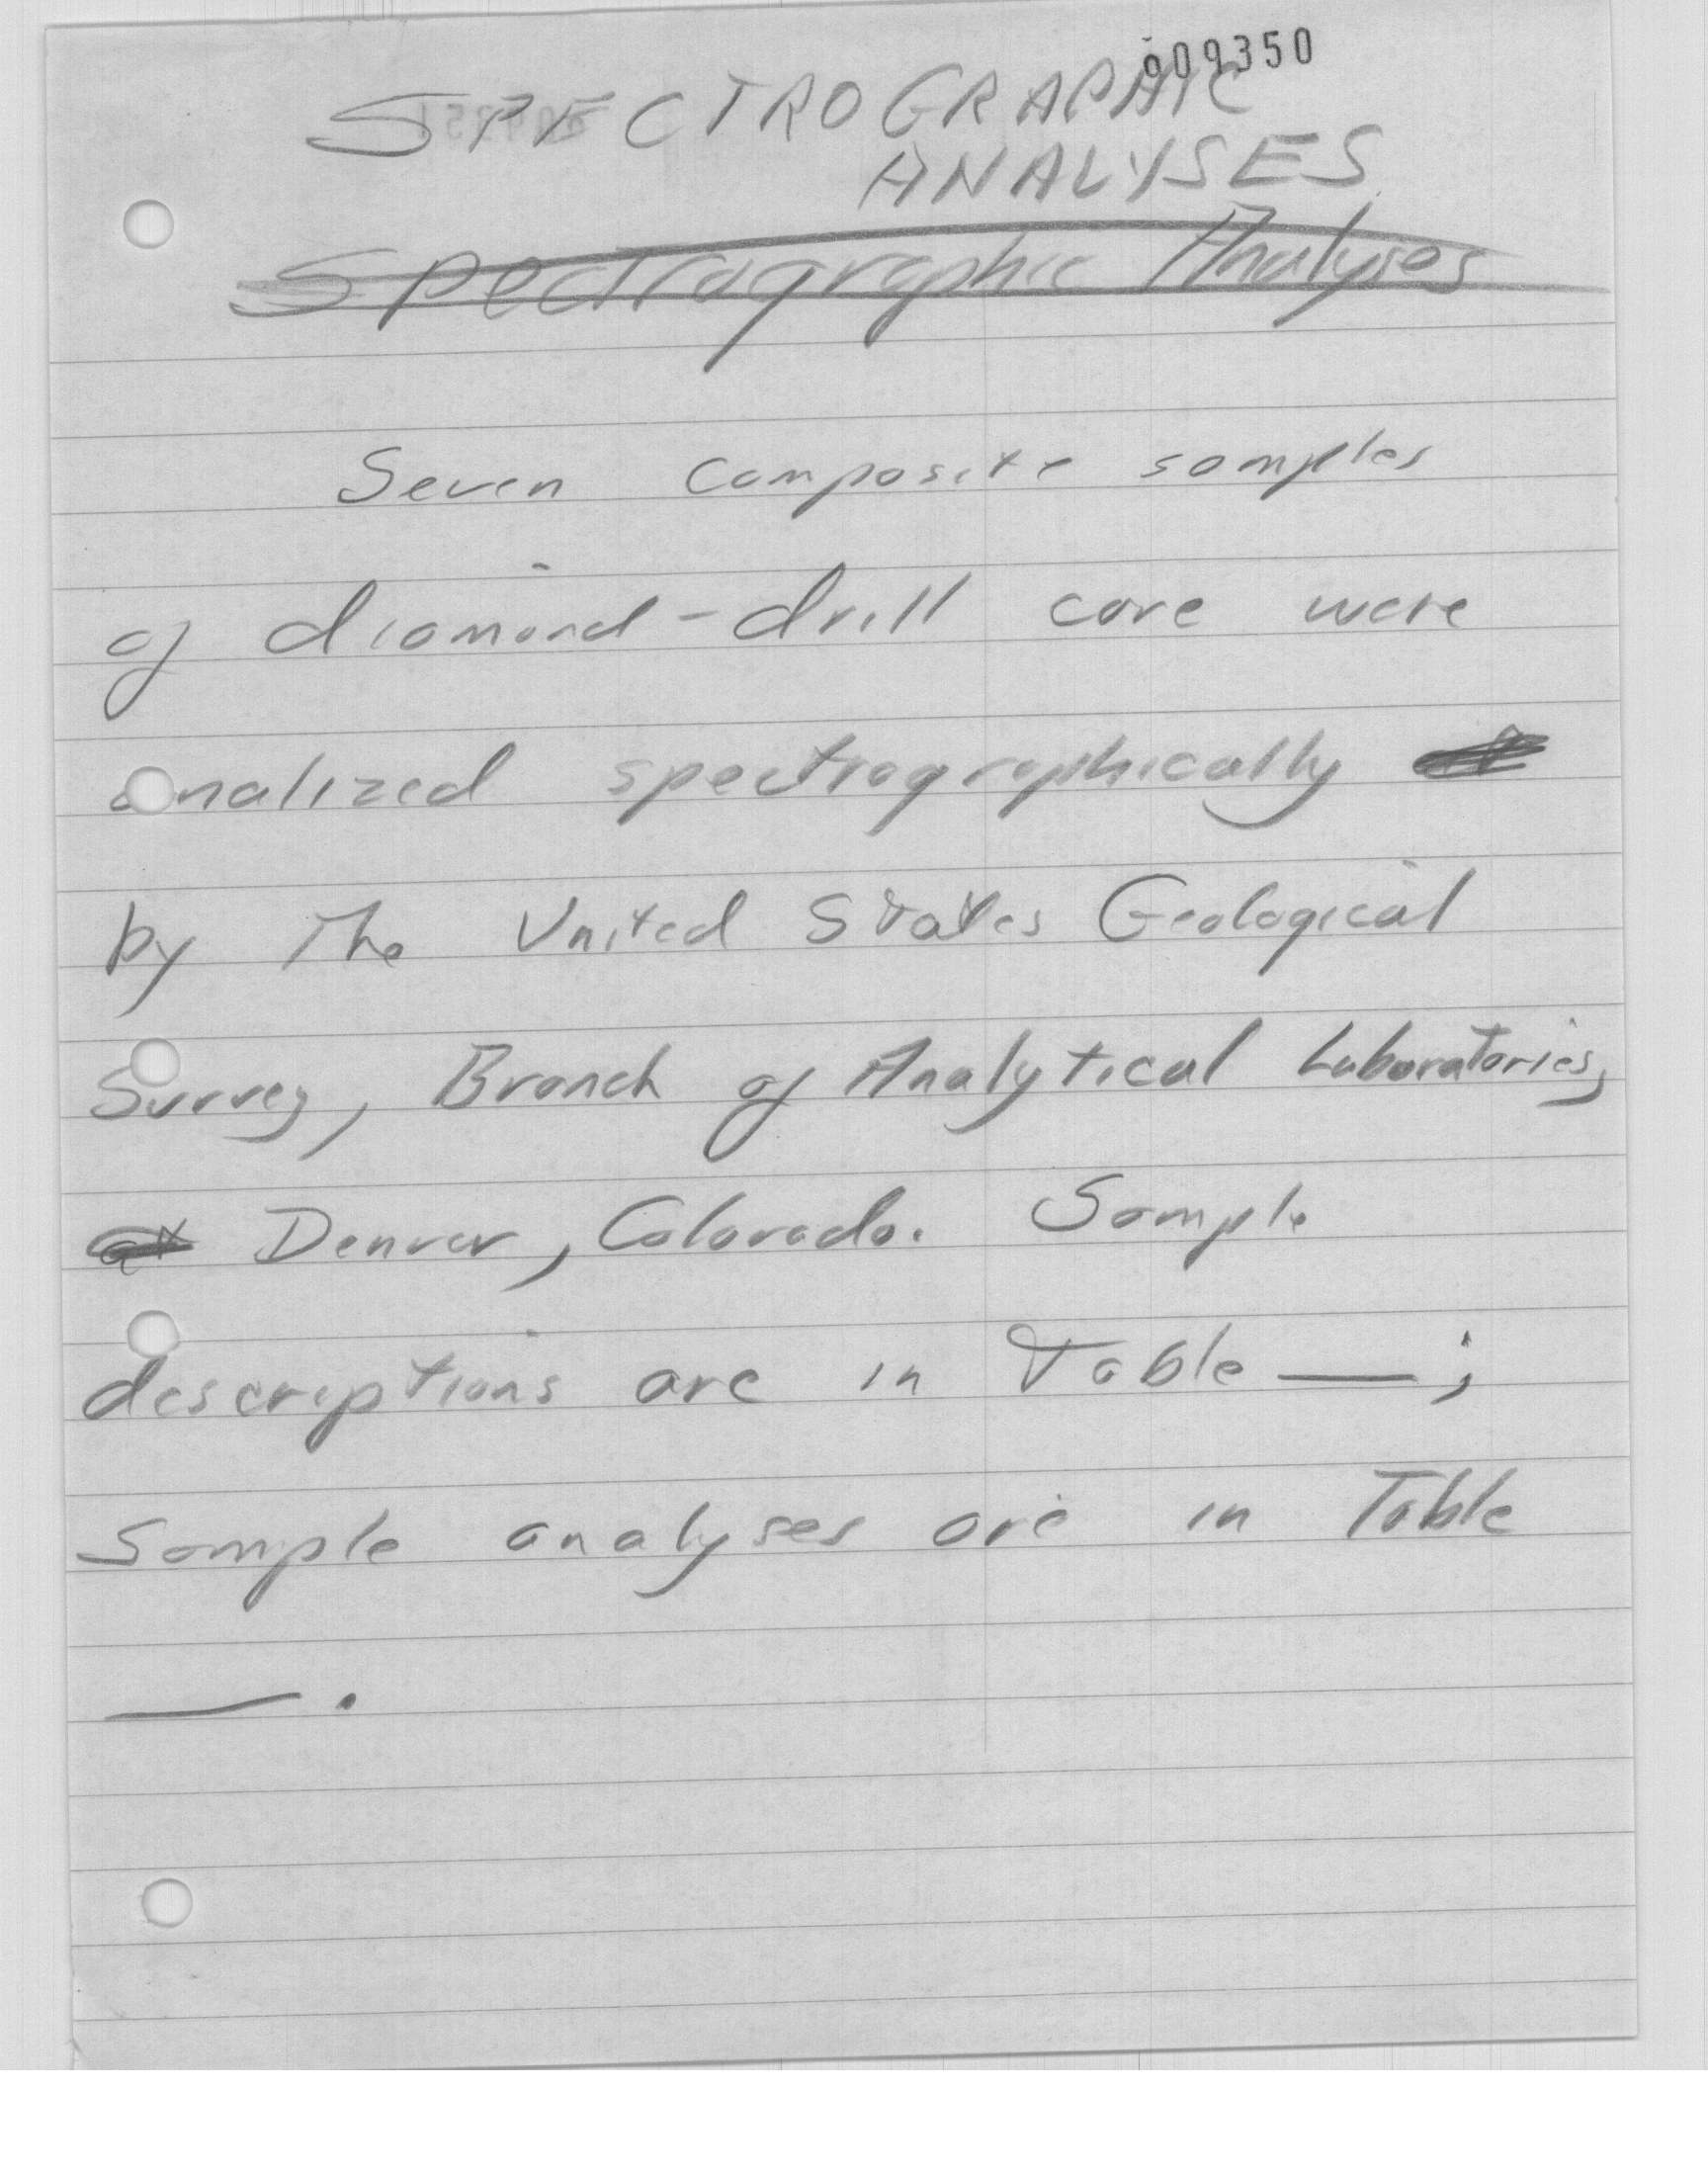 909350
SPECTROGRAPHIC
ANALYSES
Spectrographic Analyses
Seven composite samples
of diamond-drill core were
analized spectrographically
by The United States Geological
Survey, Branch of Analytical Laboratories,
at Denver, Colorado. Sample
descriptions are in Table —;
Sample analyses are in Table
—.